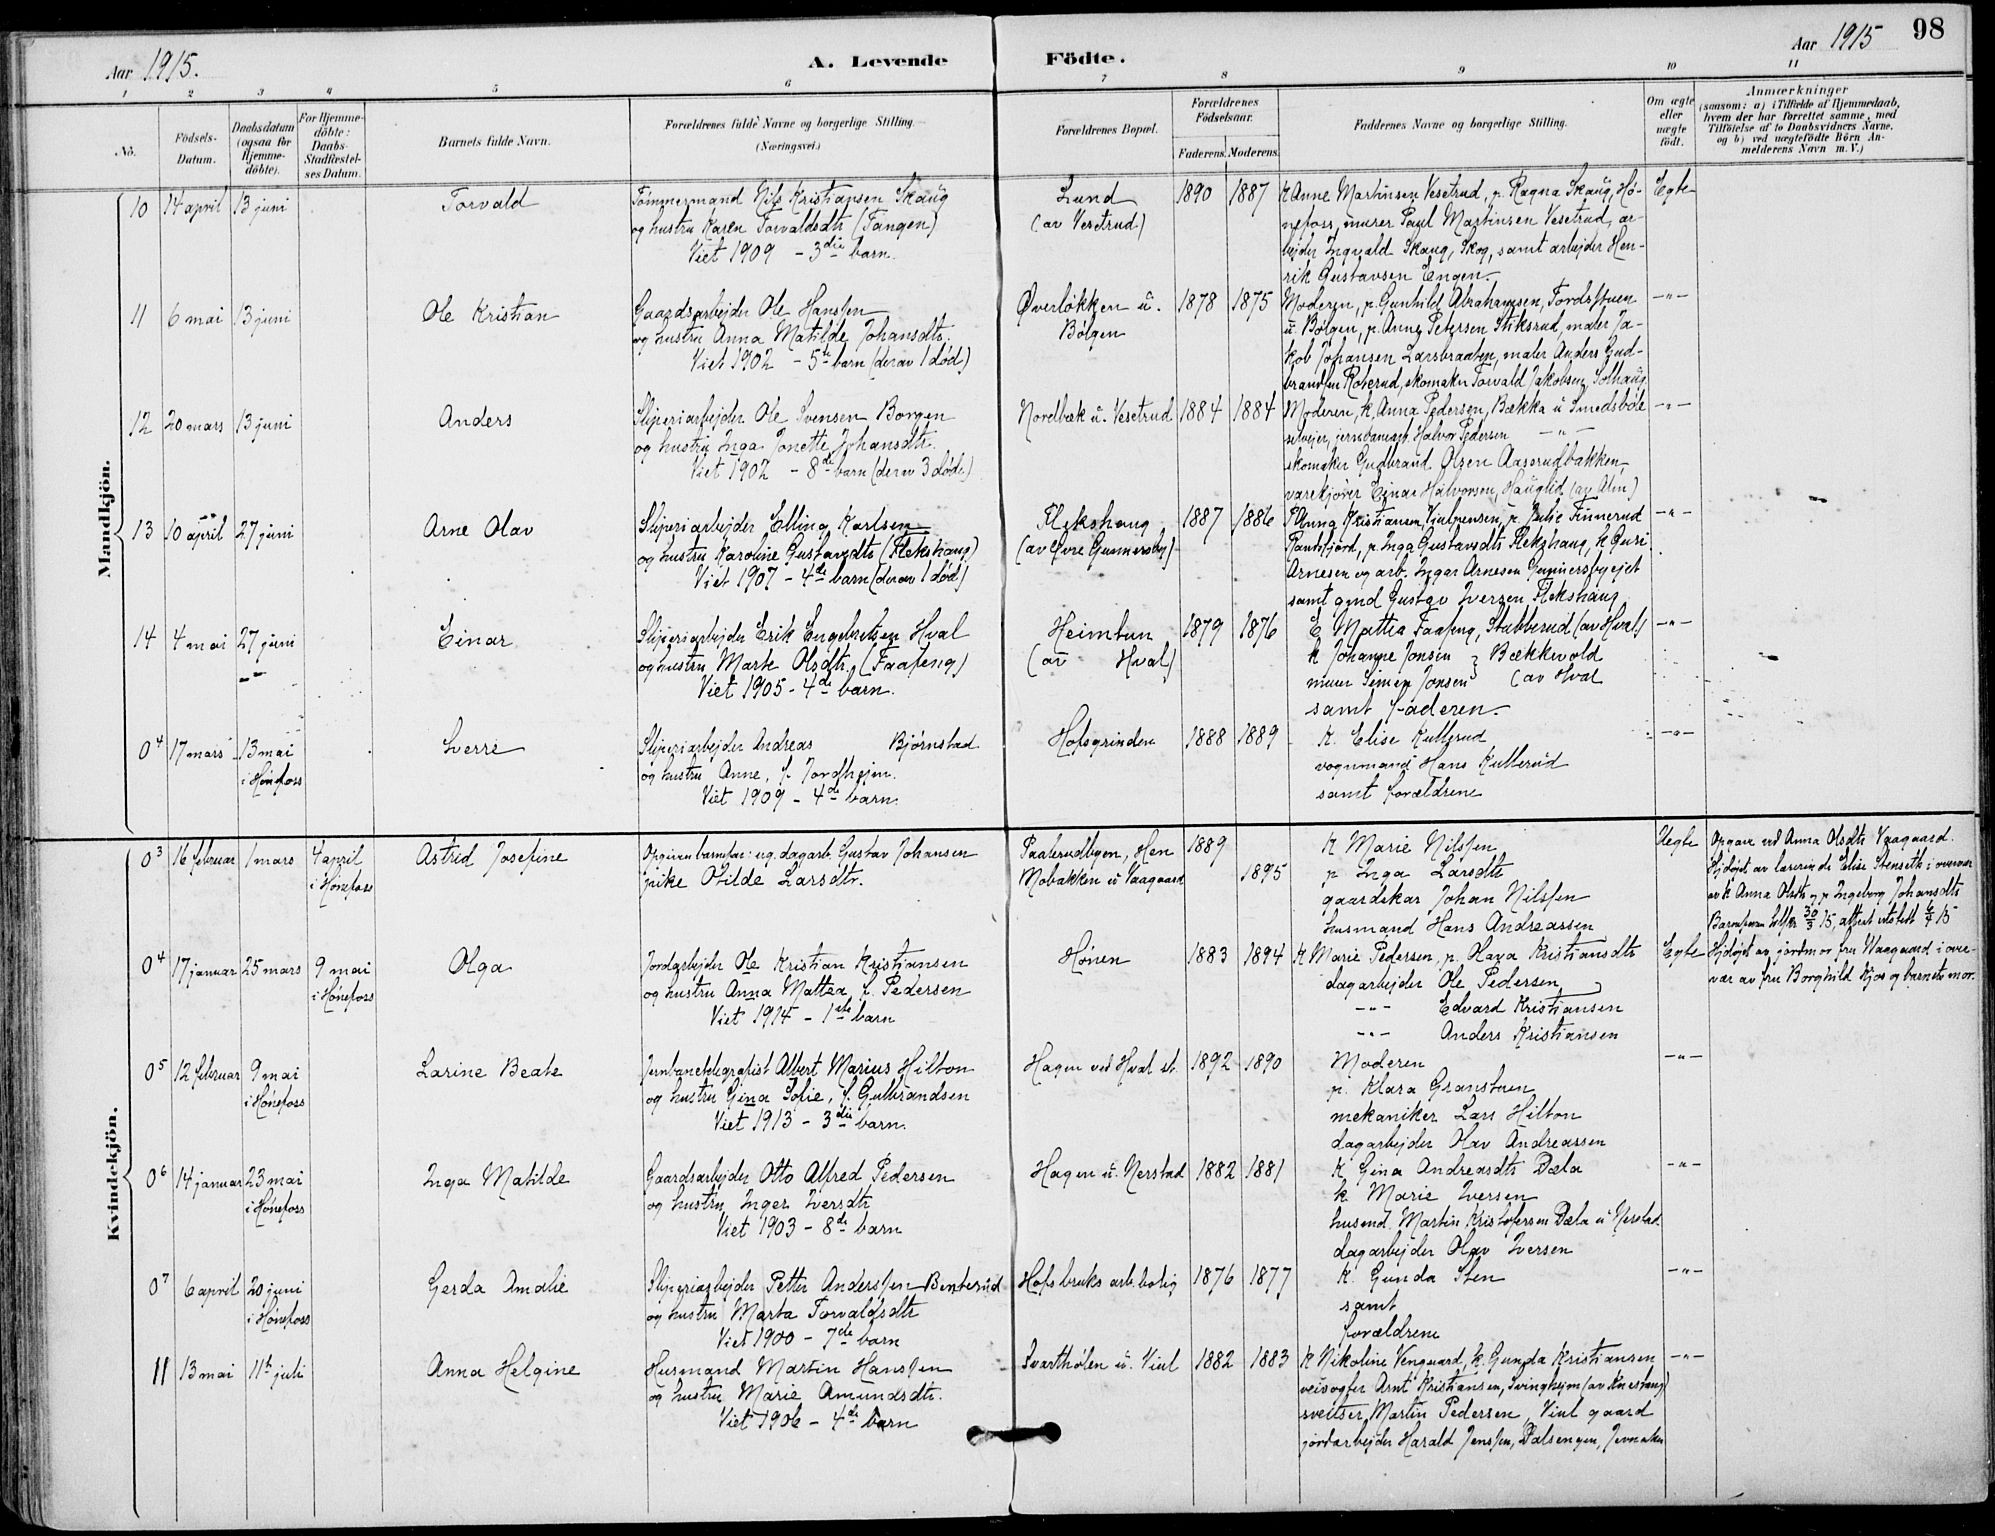 Aar 1915.
A. Levende Födte.
Aar 1915
98
1 2 3 4 5 6 7 8 9 10 11
No.
Födsels-Datum.
Daabsdatum (ogsaa for Hjemme-döbte).
For Hjemme-döbte: Daabs-Stadfæstel-ses Datum.
Barnets fulde Navn.
Forældrenes fulde Navne og borgerlige Stilling.
(Næringsvei.)
Forældrenes Bopæl.
Forældrenes Födselsaar.
Faderens. Moderens.
Faddernes Navne og borgerlige Stilling.
Om ægte eller uægte födt.
Anmærkninger
(saasom: a) i Tilfælde af Hjemmedaab,
hvem der har forrettet samme, med
Tilföielse af to Daabsvidners Navne,
og b) ved uægtefödte Börn An-
melderens Navn m. V.)
Mandkjön.
10 14 april 13 juni Torvald
Tømmermand Nils Kristiansen Skaug
og hustru Karen Torvaldsdtr (Tangen)
Viet 1909 - 3die barn.
Lund
(av Vesetrud)
1890 1887
K Anne Martinsen Vesetrud, p. Ragna Skaug, Hø-
nefoss, murer Paul Martinsen Vesetrud, ar-
beider Ingvald Skaug, Skog, samt arbejder Hen-
rik Gustavsen Engen.
Egte
11 6 mai 13 juni Ole Kristian
Gaardsarbejder Ole Hanssen
og hustru Anna Matilde Johansdtr.
Viet 1902 - 5te barn (derav 1 død)
Øverløkken u.
Bølgen
1878 1875
Moderen, p. Gunhild Abrahamsen, Tordsstuen
u. Bølgen, p. Anne Petersen Stiksrud, maler Ja-
kob Johansen Larsbraaten, maler Anders Gud-
brandsen Roterud, skomaker Torvald Jakobsen Solhaug.
-"-
12 20 mars 13 juni Anders
Sliperiarbejder Ole Svensen Borgen
og hustru Inga Jonette Johansdtr.
Viet 1902 - 8de barn (derav 3 døde)
Nordbæk u. Vesetrud
1884 1884
Moderen, k. Anna Pedersen, Bækka u Smedsbøle
selveier, jernbanearb. Halvor Pedersen -"-
skomaker Gudbrand Olsen Aaserudbakken,
varekjører Einar Halvorsen, Hauglid (av Alm)
-"-
13 10 april 27 juni Arne Olav
Sliperiarbejder Elling Karlsen
og hustru Karoline Gustavsdtr (Flekshaug)
Viet 1907 - 4de barn (derav 1 død)
Flekshaug
(av Øvre Gunnersby)
1887 1886
Anna Kristiansen, p. Julie Finnerud
Randsfjord, p. Inga Gustavsdtr Flekshaug, k Guri
Arnesen og arb. Ingar Arnesen Gunnersbyejet
samt gmd Gustav Iversen Flekshaug
-"-
14 4 mai 27 juni Einar
-"-
Sliperiarbejder Erik Engebretsen Hval
og hustru Marte Olsdtr (Faafeng)
Viet 1905 - 4de barn.
Heimtun
(av Hval)
1879 1876
E Mattea Faafeng, Stubberud (av Hval)
k Johanne Jonsen } Bækkevold
murer Simen Jonsen (av Hval
samt faderen.
-"-
04 17 mars 13 mai
i Hønefoss
Sverre
Sliperiarbejder Andreas Bjørnstad
og hustru Anne, f. Jordhejm.
Viet 1909 - 4de barn.
Hofsgrinden
1888 1889
K. Elise Kullerud
vognmand Hans Kullerud
samt forældrene
-"-
Kvindekjön.
03 16 februar 1 mars 4 april
i Hønefoss
Astrid Josefine
Opgiven barnefar: ug. dagarb. Gustav Johansen
pike Otilde Larsdtr.
Paalerudbyen, Hen
Mobakken u Vaagaard
1889
1895
K Marie Nilssen
p Inga Larsdtr
gaardskar Johan Nilssen
husmand Hans Andreassen
Uegte
Opgave ved Anna Olsdtr Vaagaard.
Hjdøpt av lærerinde Elise Stensetti i overvær
av k Anna Olsdtr og p Ingeborg Johansdtr
04 17 januar 25 mars 9 mai
i Hønefoss
Olga
Jordarbejder Ole Kristian Kristiansen
og hustru Anna Mattea f. Pedersen
Viet 1914 - 1ste barn
Hønen
1883 1894
K Marie Pedersen, p. Hava Kristiansdtr
dagarbejder Ole Pedersen
-"- Edvard Kristiansen
-"- Anders Kristiansen
Egte
Hjdøpt av jordmor fru Waagaard i over-
vær av fru Borghild Kjos og barnets mor.
05 12 februar 9 mai
i Hønefoss
Larine Beate
Jernbanetelegrafist Albert Marius Hilton
og hustru Gina Sofie, f. Gulbrandsen
Viet 1913 - 3die barn.
Hagen ved Hval st.
1892 1890
Moderen
p. Klara Granstuen
mekaniker Lars Hilton
dagarbejder Olav Andreassen
-"-
06 14 januar 23 mai
i Hønefoss
Inga Matilde
Gaardsarbejder Otto Alfred Pedersen
og hustru Inger Iversdtr
Viet 1903 - 8de barn
Hagen u. Nerstad
1882 1881
K Gina Andreasdtr Dæla
k Marie Iversen
husmd. Martin Kristofersen Dæla u Nerstad.
dagarbejder Olav Iversen
-"-
07 6 april 20 juni
i Hønefoss
Gerda Amalie
Sliperiarbejder Petter Anderssen Benterud
og hustru Marta Torvaldsdtr
Viet 1900 - 7de barn
Hofsbruks arb.bolig
1876 1877
K. Gunda Sten
samt
forældrene
-"-
11 13 mai 11te juli Anna Helgine
Husmand Martin Hanssen
og hustru Marie Amundsdtr.
Viet 1906 - 4de barn
Svarthølen u. Viul
1882 1883
K Nikoline Vengaard, k. Gunda Kristiansen
veivogter Arnt Kristiansen, Svinghejm
sveitser Martin Pedersen, Viul gaard
jordarbejder Harald Jenssen, Dalsengen, Jevnaker
-"-